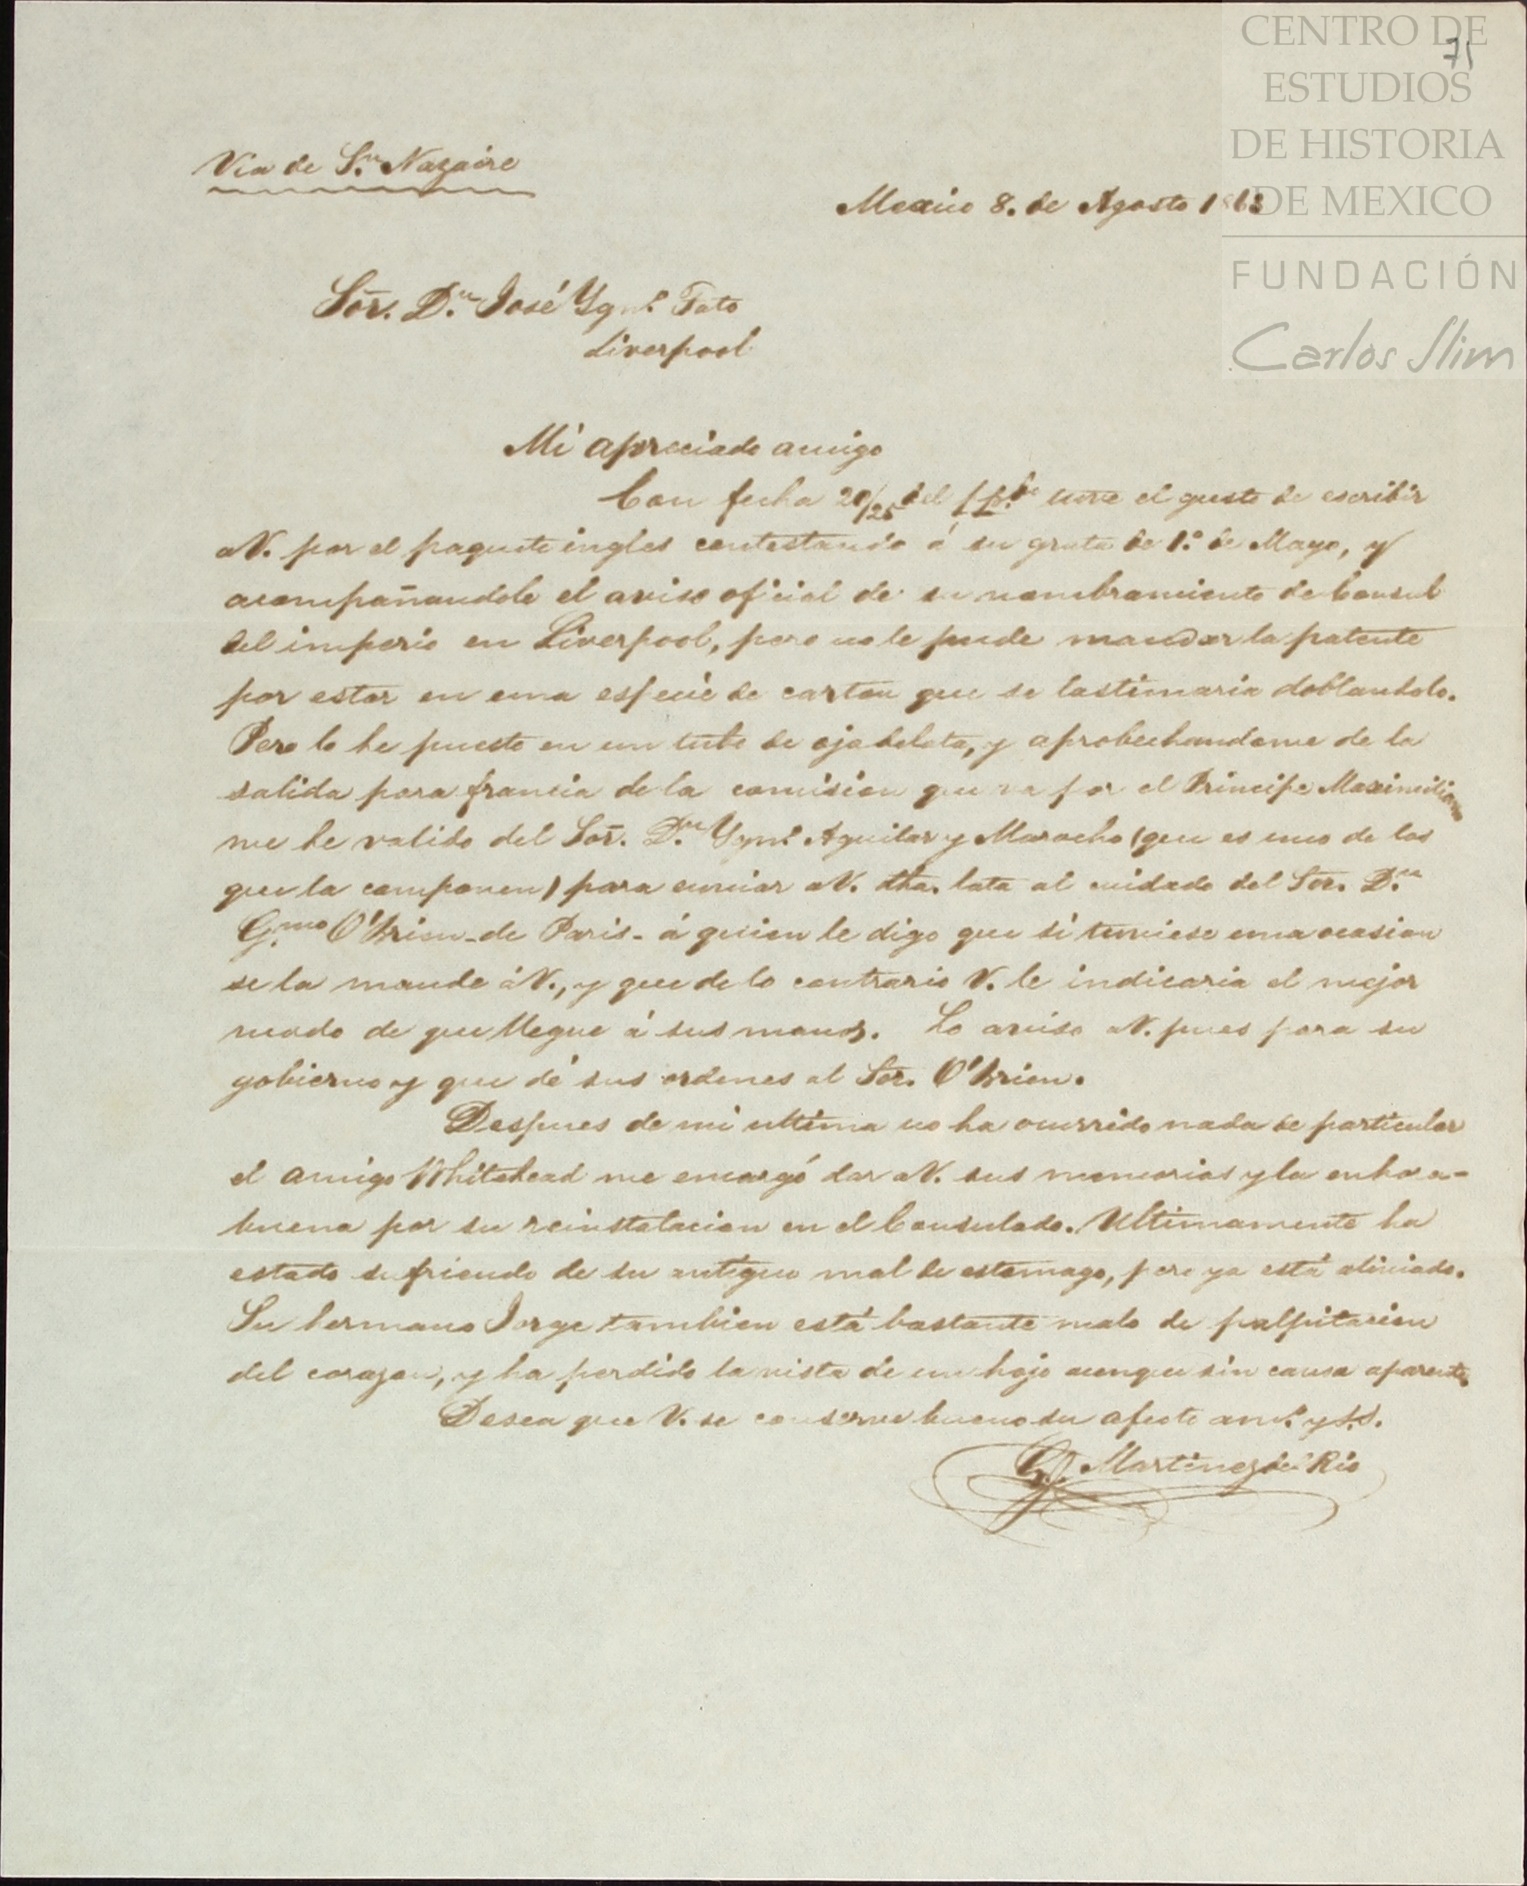 CENTRO DE
ESTUDIOS
DE HISTORIA
DE MEXICO
FUNDACIÓN
Carlos Slim
75
Via de Sn. Nazaire
Mexico 8. de Agosto 1863
Sõr. Dn. José Ygno. Tato
Liverpool
Mi apreciado amigo
Con fecha 20/25 del tuve el gusto de escribir
a V. por el paquete ingles contestando á su grata de 1.º de Mayo, y
acompañandole el aviso oficial de su nombramiento de Consul
del imperio en Liverpool, pero no le pude mandar la patente
por estar en una especie de carton que se lastimaria doblandolo.
Pero lo he puesto en un tubo de oja delata, y aprobechandome de la
salida para francia de la comision que va por el Principe Maximiliano
me he valido del Sõr. Dn. Ygno. Aguilar y Marocho (que es uno de los
que la componen) para enviar a V. dha. lata al cuidado del Sor. Dn.
Gmo. O'Brien - de Paris - á quien le digo que si tuviese una ocasion
se la mande á V., y que de lo contrario V. le indicaria el mejor
modo de que llegue á sus manos. Lo aviso a V. pues para su
gobierno y que dé sus ordenes al Sor. O'Brien.
Despues de mi ultima no ha ocurrido nada de particular
el amigo Whitehead me encargó dar a V. sus memorias y la enhora-
buena por su reinstalacion en el Consulado. Ultimamente ha
estado sufriendo de su antiguo mal de estomago, pero ya está aliviado.
Su hermano Jorge tambien está bastante malo de palpitacion
del corazon, y ha perdido la vista de un hojo aunque sin causa aparente.
Desea que V. se conserve bueno su afecto amo. y S.S.
G. Martinez del Rio